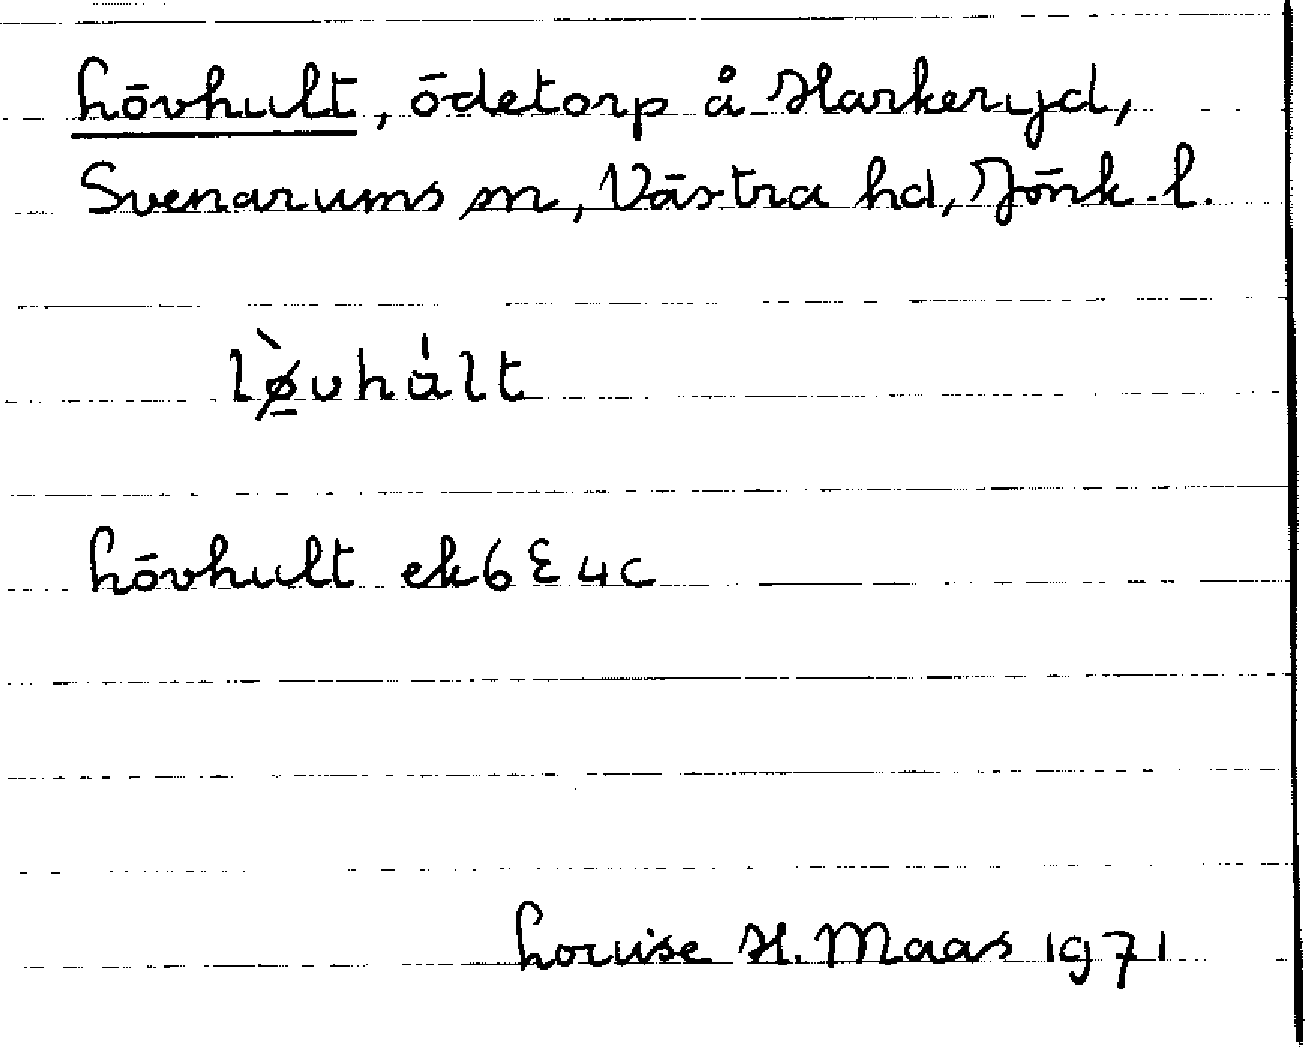 Lövhult, ödetorp å Harkeryd,
Svenarums sn, Västra hd, Jönk. l.
lø̠̀vhȧlt
Lövhult ek 6 E 4 c
Louise H. Maas 1971